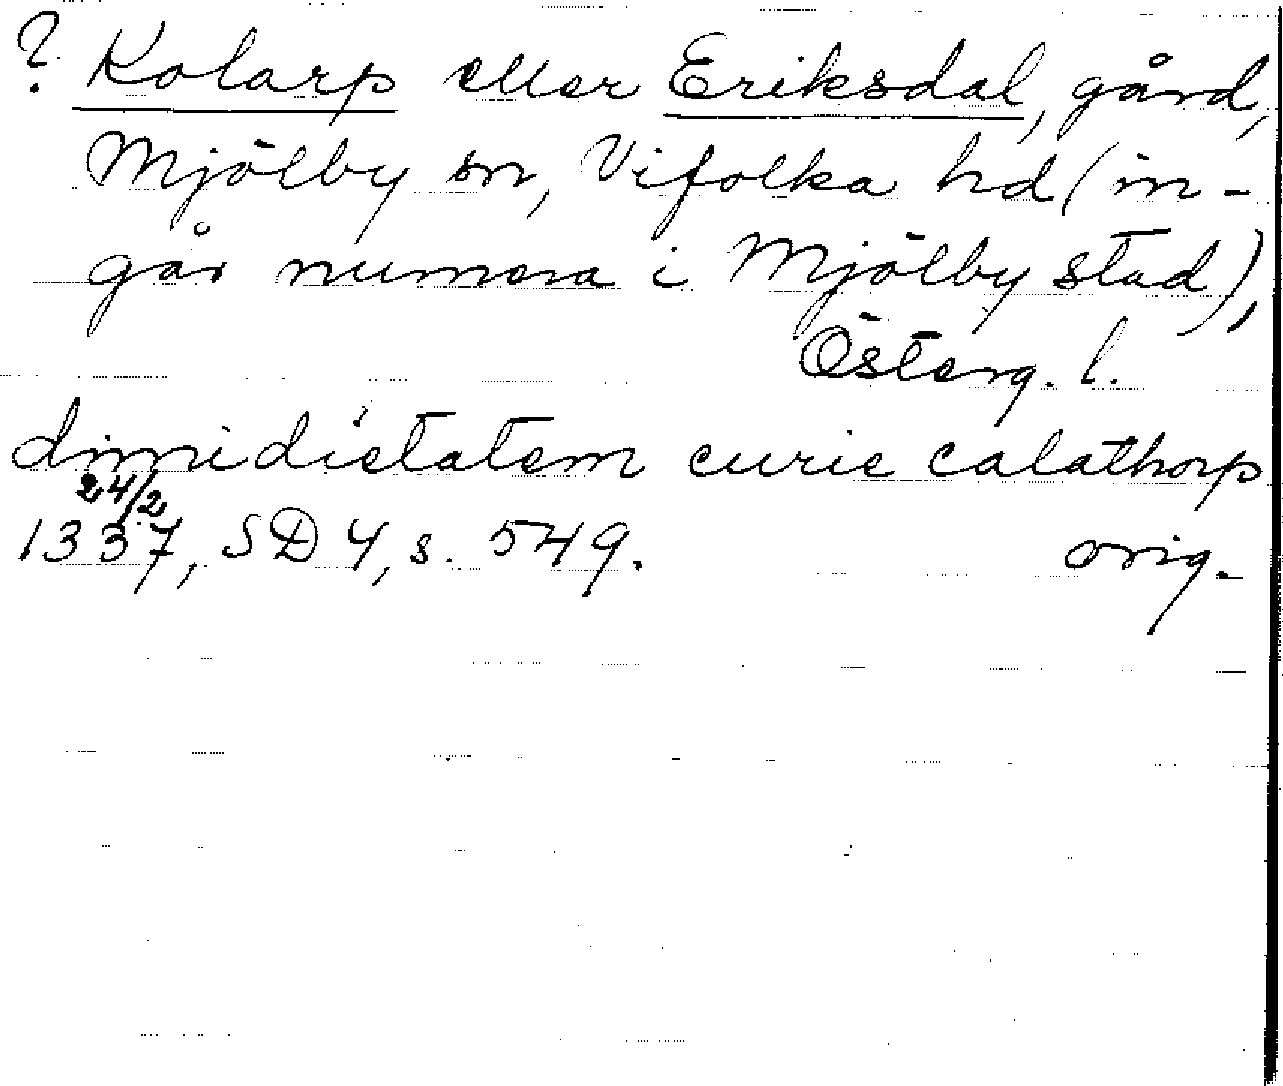 ? Kolarp eller Eriksdal, gård,
Mjölby sn, Vifolka hd (in-
går numera i Mjölby stad),
Österg. l.
dimidietatem curie calathorp
24/2
1337, SD 4, s. 549. orig.